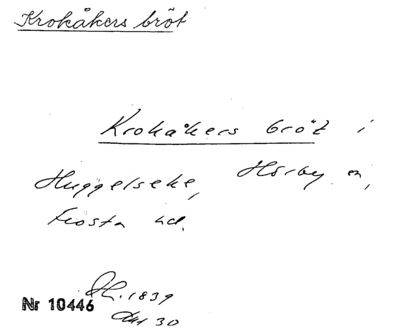 Krokåkers bröt
Krokåkers bröt i
Huggelseke, Hörby sn,
Frosta hd.
Nr 10446
1839
30